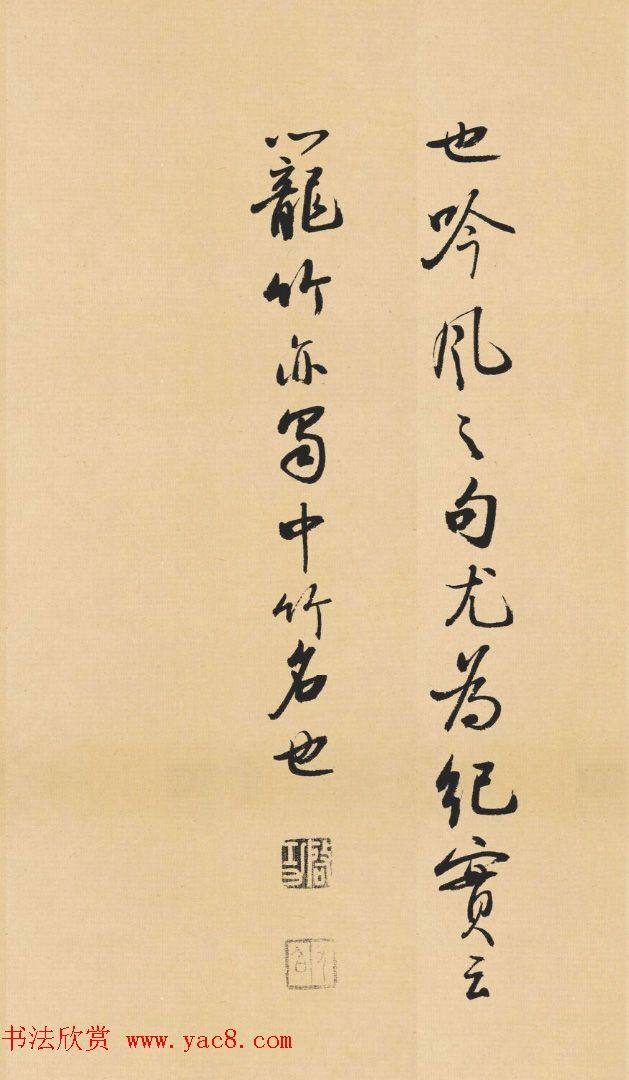 也吟风之句尤为纪實云
籠竹亦蜀中竹名也
啟功
书法欣赏 www.yac8.com